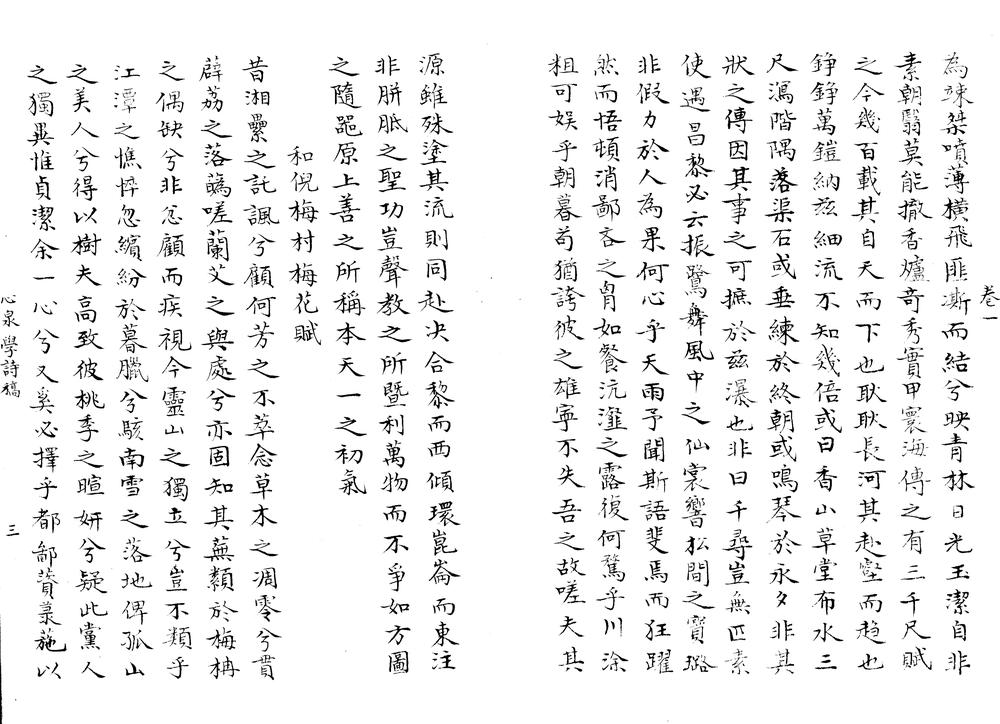 卷一
為竦桀噴薄橫飛匪澌而結兮映青林日光玉潔自非
素朝翳莫能撤香爐奇秀實甲寰海傳之有三千尺賦
之今幾百載其自天而下也耿耿長河其赴壑而趋也
錚錚萬鎧納玆細流不知幾倍或曰香山草堂布水三
尺瀉階隅落渠石或垂練於終朝或鳴琴於永夕非其
狀之傳因其事之可摭於兹瀑也非曰千尋豈無匹素
使遇昌黎必云振鷺舞風中之仙裳響松間之寳璐
非假力於人為果何心乎天雨予聞斯語斐焉而狂躍
然而悟頓消鄙吝之胷如餐沆瀣之露復何驚乎川涂
粗可娱乎朝暮苟猶誇彼之雄寜不失吾之故嗟夫其
源雖殊塗其流則同赴决合黎而西傾環崑崙而東注
非胼胝之聖功豈聲教之所暨利萬物而不爭如方圖
之隨噐原上善之所稱本天一之初氣
和倪梅村梅花賦
昔湘纍之託諷兮顧何芳之不萃念草木之凋零兮貫
薜荔之落蘂嗟蘭艾之與處兮亦固知其蕪纇於梅枏
之偶缺兮非忘顧而疾視今靈山之獨立兮豈不類乎
江潭之憔悴忽繽紛於暮臘兮駭南雪之落地俾孤山
之美人兮得以樹夫高致彼桃李之暄妍兮疑此黨人
之獨異惟貞潔余一心兮又奚必擇乎都鄙賛菉葹以
心泉學詩稿
三